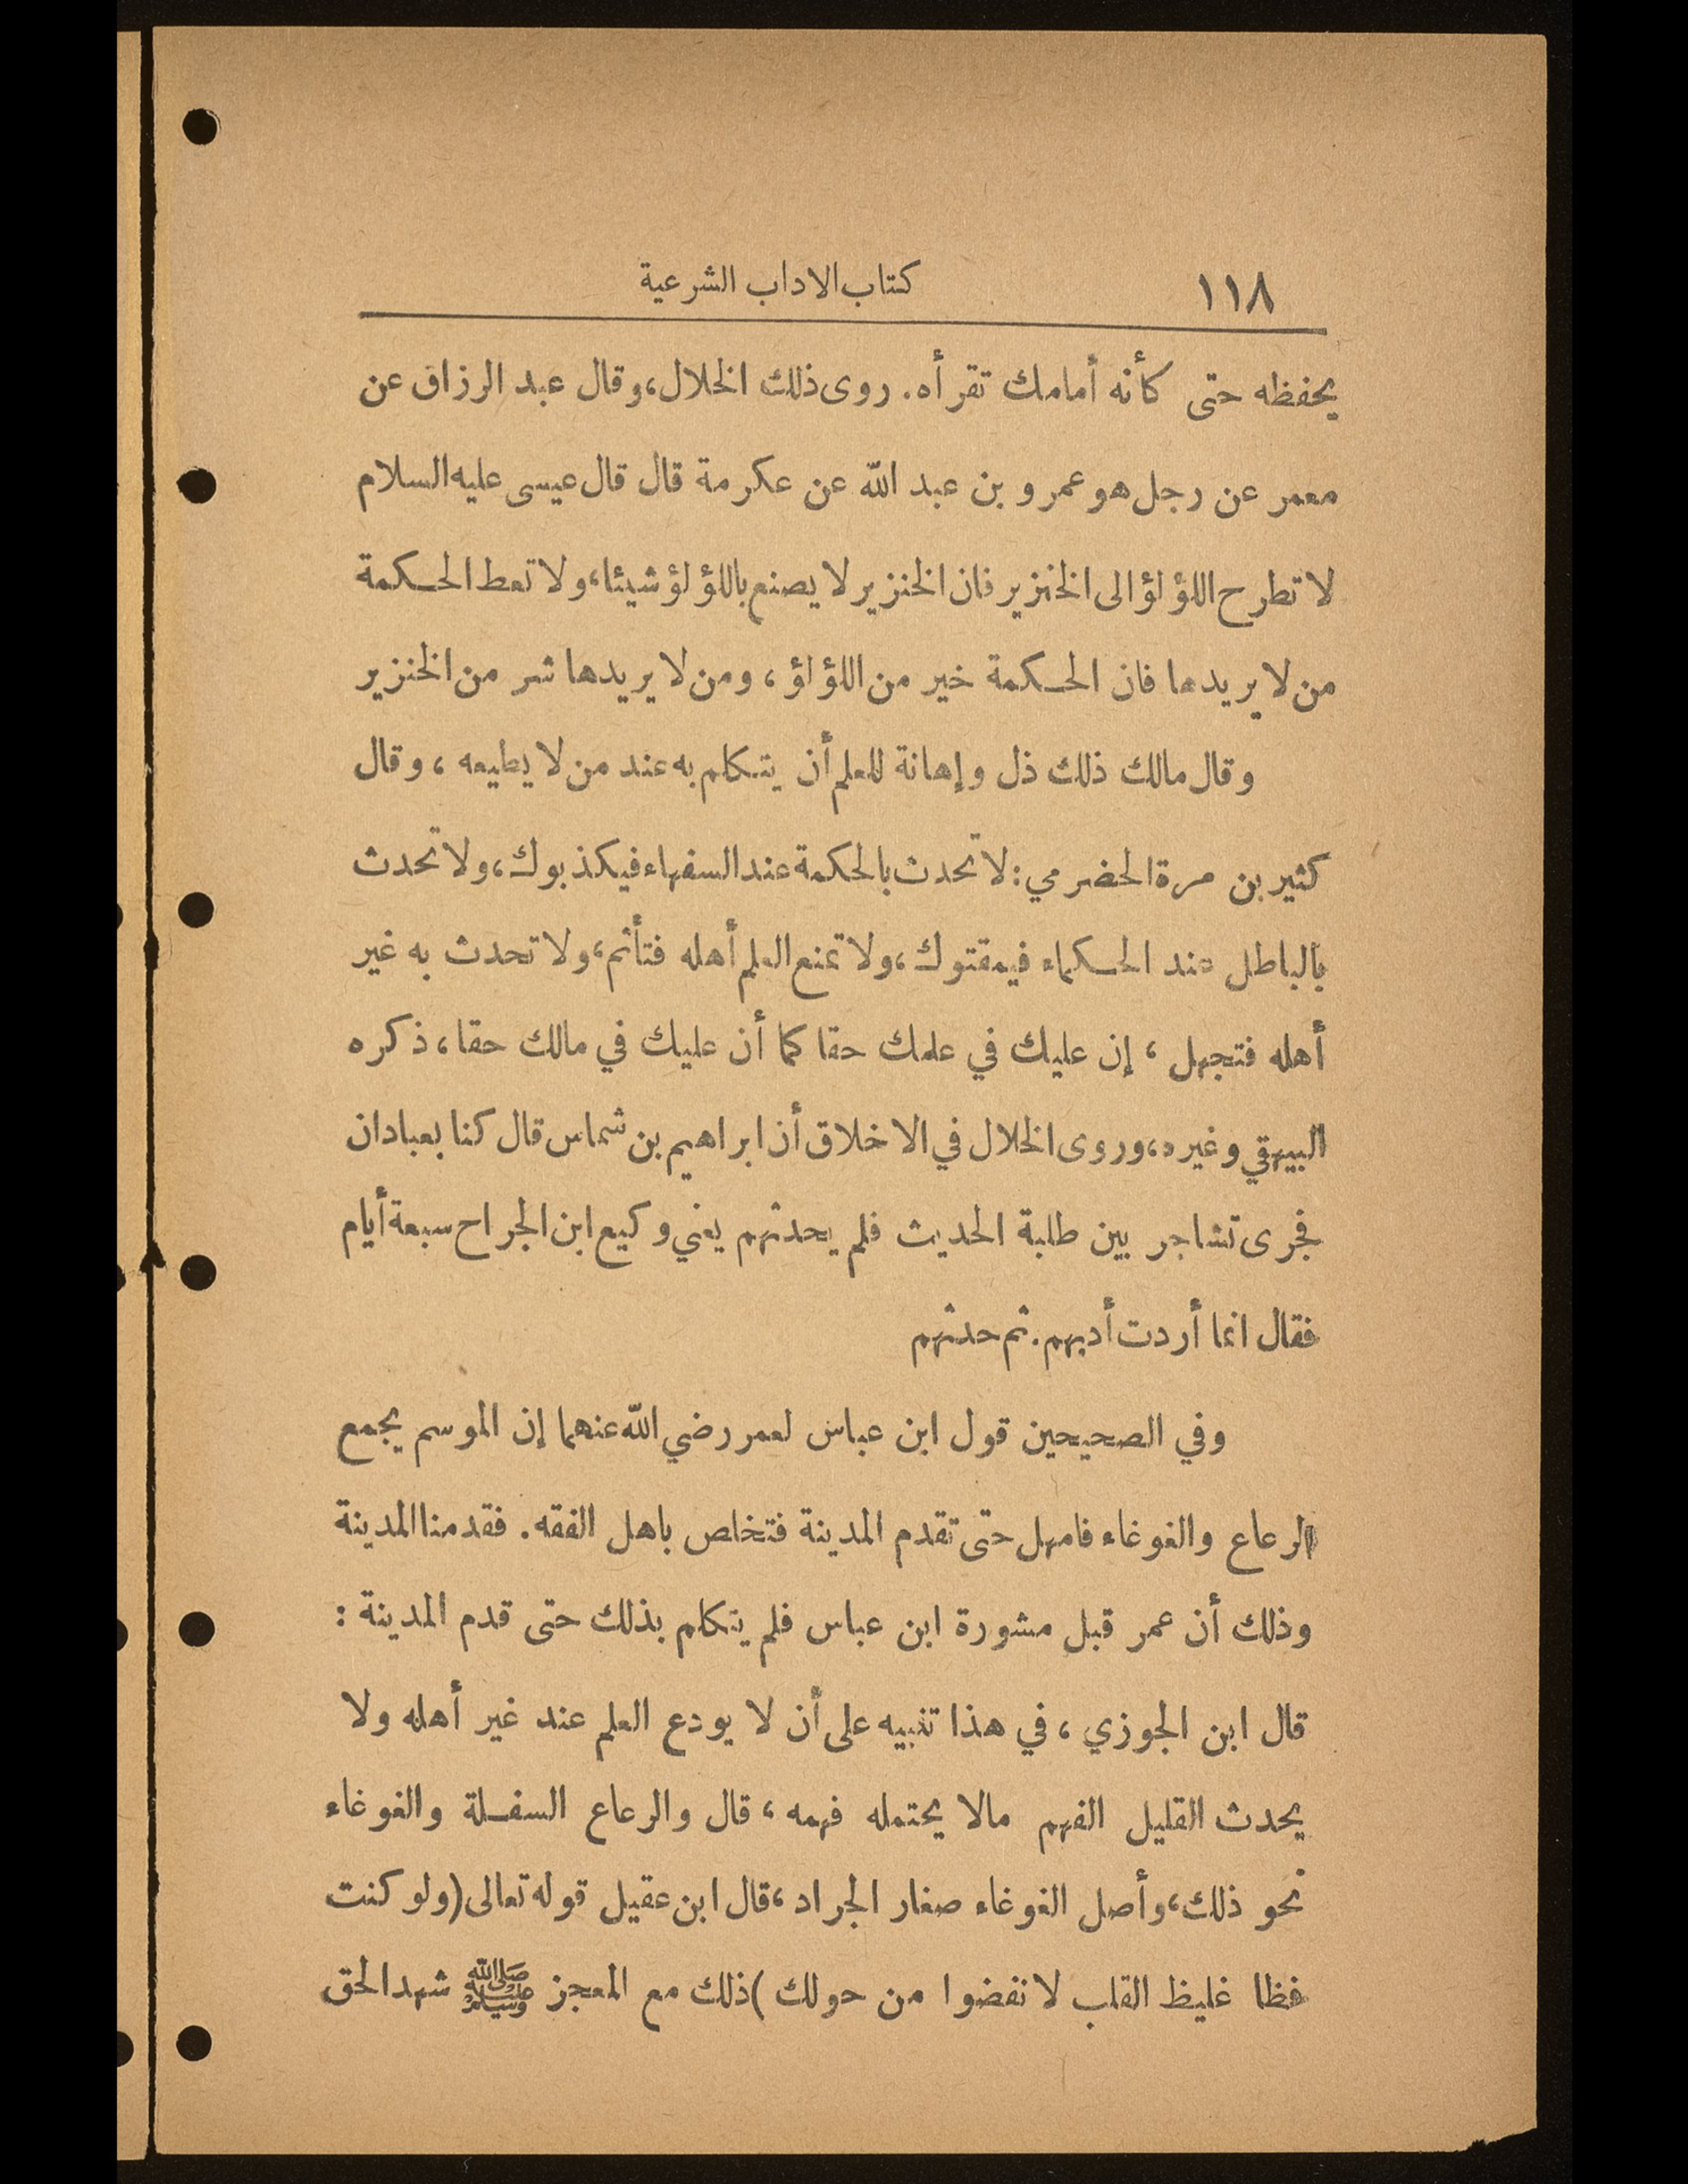 ١١٨ كتاب الاداب الشرعية
يحفظه حتى كأنه أمامك تقرأه. روى ذلك الخلال، وقال عبد الرزاق عن
معمر عن رجل هو عمرو بن عبد الله عن عكرمة قال قال عيسى عليه السلام
لا تطرح اللؤلؤ الى الخنزير فان الخنزير لا يصنع باللؤلؤ شيئا، ولا تعط الحكمة
من لا يريدها فان الحكمة خير من اللؤلؤ، ومن لا يريدها شر من الخنزير
وقال مالك ذلك ذل وإهانة للعلم أن يتكلم به عند من لا يطيعه، وقال
كثير بن مرة الحضرمي: لا تحدث بالحكمة عند السفهاء فيكذبوك، ولا تحدث
بالباطل عند الحكماء فيمقتوك، ولا تمنع العلم أهله فتأثم، ولا تحدث به غير
أهله فتجهل، إن عليك في علمك حقا كما أن عليك في مالك حقا، ذكره
البيهقي وغيره، وروى الخلال في الاخلاق أن ابراهيم بن شماس قال كنا بعبادان
فجرى تشاجر بين طلبة الحديث فلم يحدثهم يعني وكيع ابن الجراح سبعة أيام
فقال انما أردت أدبهم. ثم حدثهم
وفي الصحيحين قول ابن عباس لعمر رضي الله عنهما إن الموسم يجمع
الرعاع والغوغاء فامهل حتى تقدم المدينة فتخلص باهل الفقه. فقدمنا المدينة
وذلك أن عمر قبل مشورة ابن عباس فلم يتكلم بذلك حتى قدم المدينة:
قال ابن الجوزي، في هذا تنبيه على أن لا يودع العلم عند غير أهله ولا
يحدث القليل الفهم مالا يحتمله فهمه، قال والرعاع السفلة والغوغاء
نحو ذلك، وأصل الغوغاء صغار الجراد، قال ابن عقيل قوله تعالى (ولو كنت
فظا غليظ القلب لا نفضوا من حولك) ذلك مع المعجز ﷺ شهد الحق